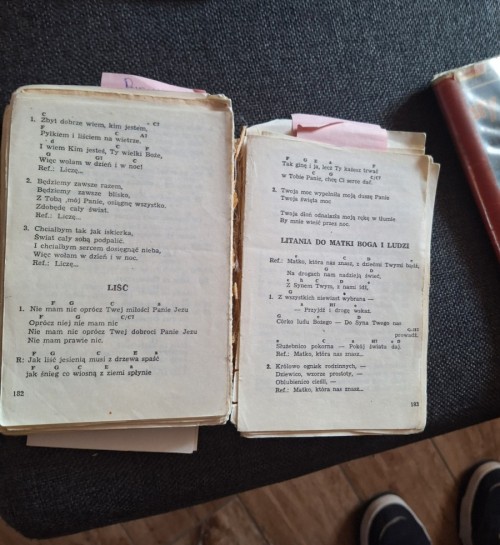 C C7
1. Zbyt dobrze wiem, kim jestem,
F C A7
Pyłkiem i liściem na wietrze.
d C
I wiem Kim jesteś, Ty wielki Boże,
G G7 C
Więc wołam w dzień i w noc!
Ref.: Liczę...
2. Będziemy zawsze razem,
Będziemy zawsze blisko,
Z Tobą ,mój Panie, osiągnę wszystko.
Zdobędę cały świat.
Ref.: Liczę...
3. Chciałbym tak jak iskierka,
Świat cały sobą podpalić.
I chciałbym sercem dosięgnąć nieba,
Więc wołam w dzień i w noc.
Ref.: Liczę...
LIŚĆ
F G C a
1. Nie mam nic oprócz Twej miłości Panie Jezu
F G C/C7
Oprócz niej nie mam nic
Nie mam nic oprócz Twej dobroci Panie Jezu
Nie mam prawie nic.
F G C E a
R: Jak liść jesienią musi z drzewa spaść
F G C E a
jak śnieg co wiosną z ziemi spłynie
182
F G E a F
Tak ginę i ja, lecz Ty każesz trwać
d G C/C7
w Tobie Panie, chcę Ci serce dać.
2. Twoja moc wypełniła moją duszę Panie
Twoja święta moc
Twoja dłoń odnalazła moją rękę w tłumie
By mnie wieść przez noc.
LITANIA DO MATKI BOGA I LUDZI
G e C D
Ref.: Matko, która nas znasz, z dziećmi Twymi bądź,
Na drogach nam nadzieją świeć,
Z Synem Twym, z nami idź,
1. Z wszystkich niewiast wybrana —
— Przyjdź i drogę wskaż.
Córko ludu Bożego — Do Syna Twego nas
prowadź.
Służebnico pokorna — Pokój światu daj.
Ref.: Matko, która nas znasz...
2. Królowo ognisk rodzinnych, —
Dziewico, wzorze prostoty, —
Oblubienico cieśli, —
Ref.: Matko, która nas znasz...
183